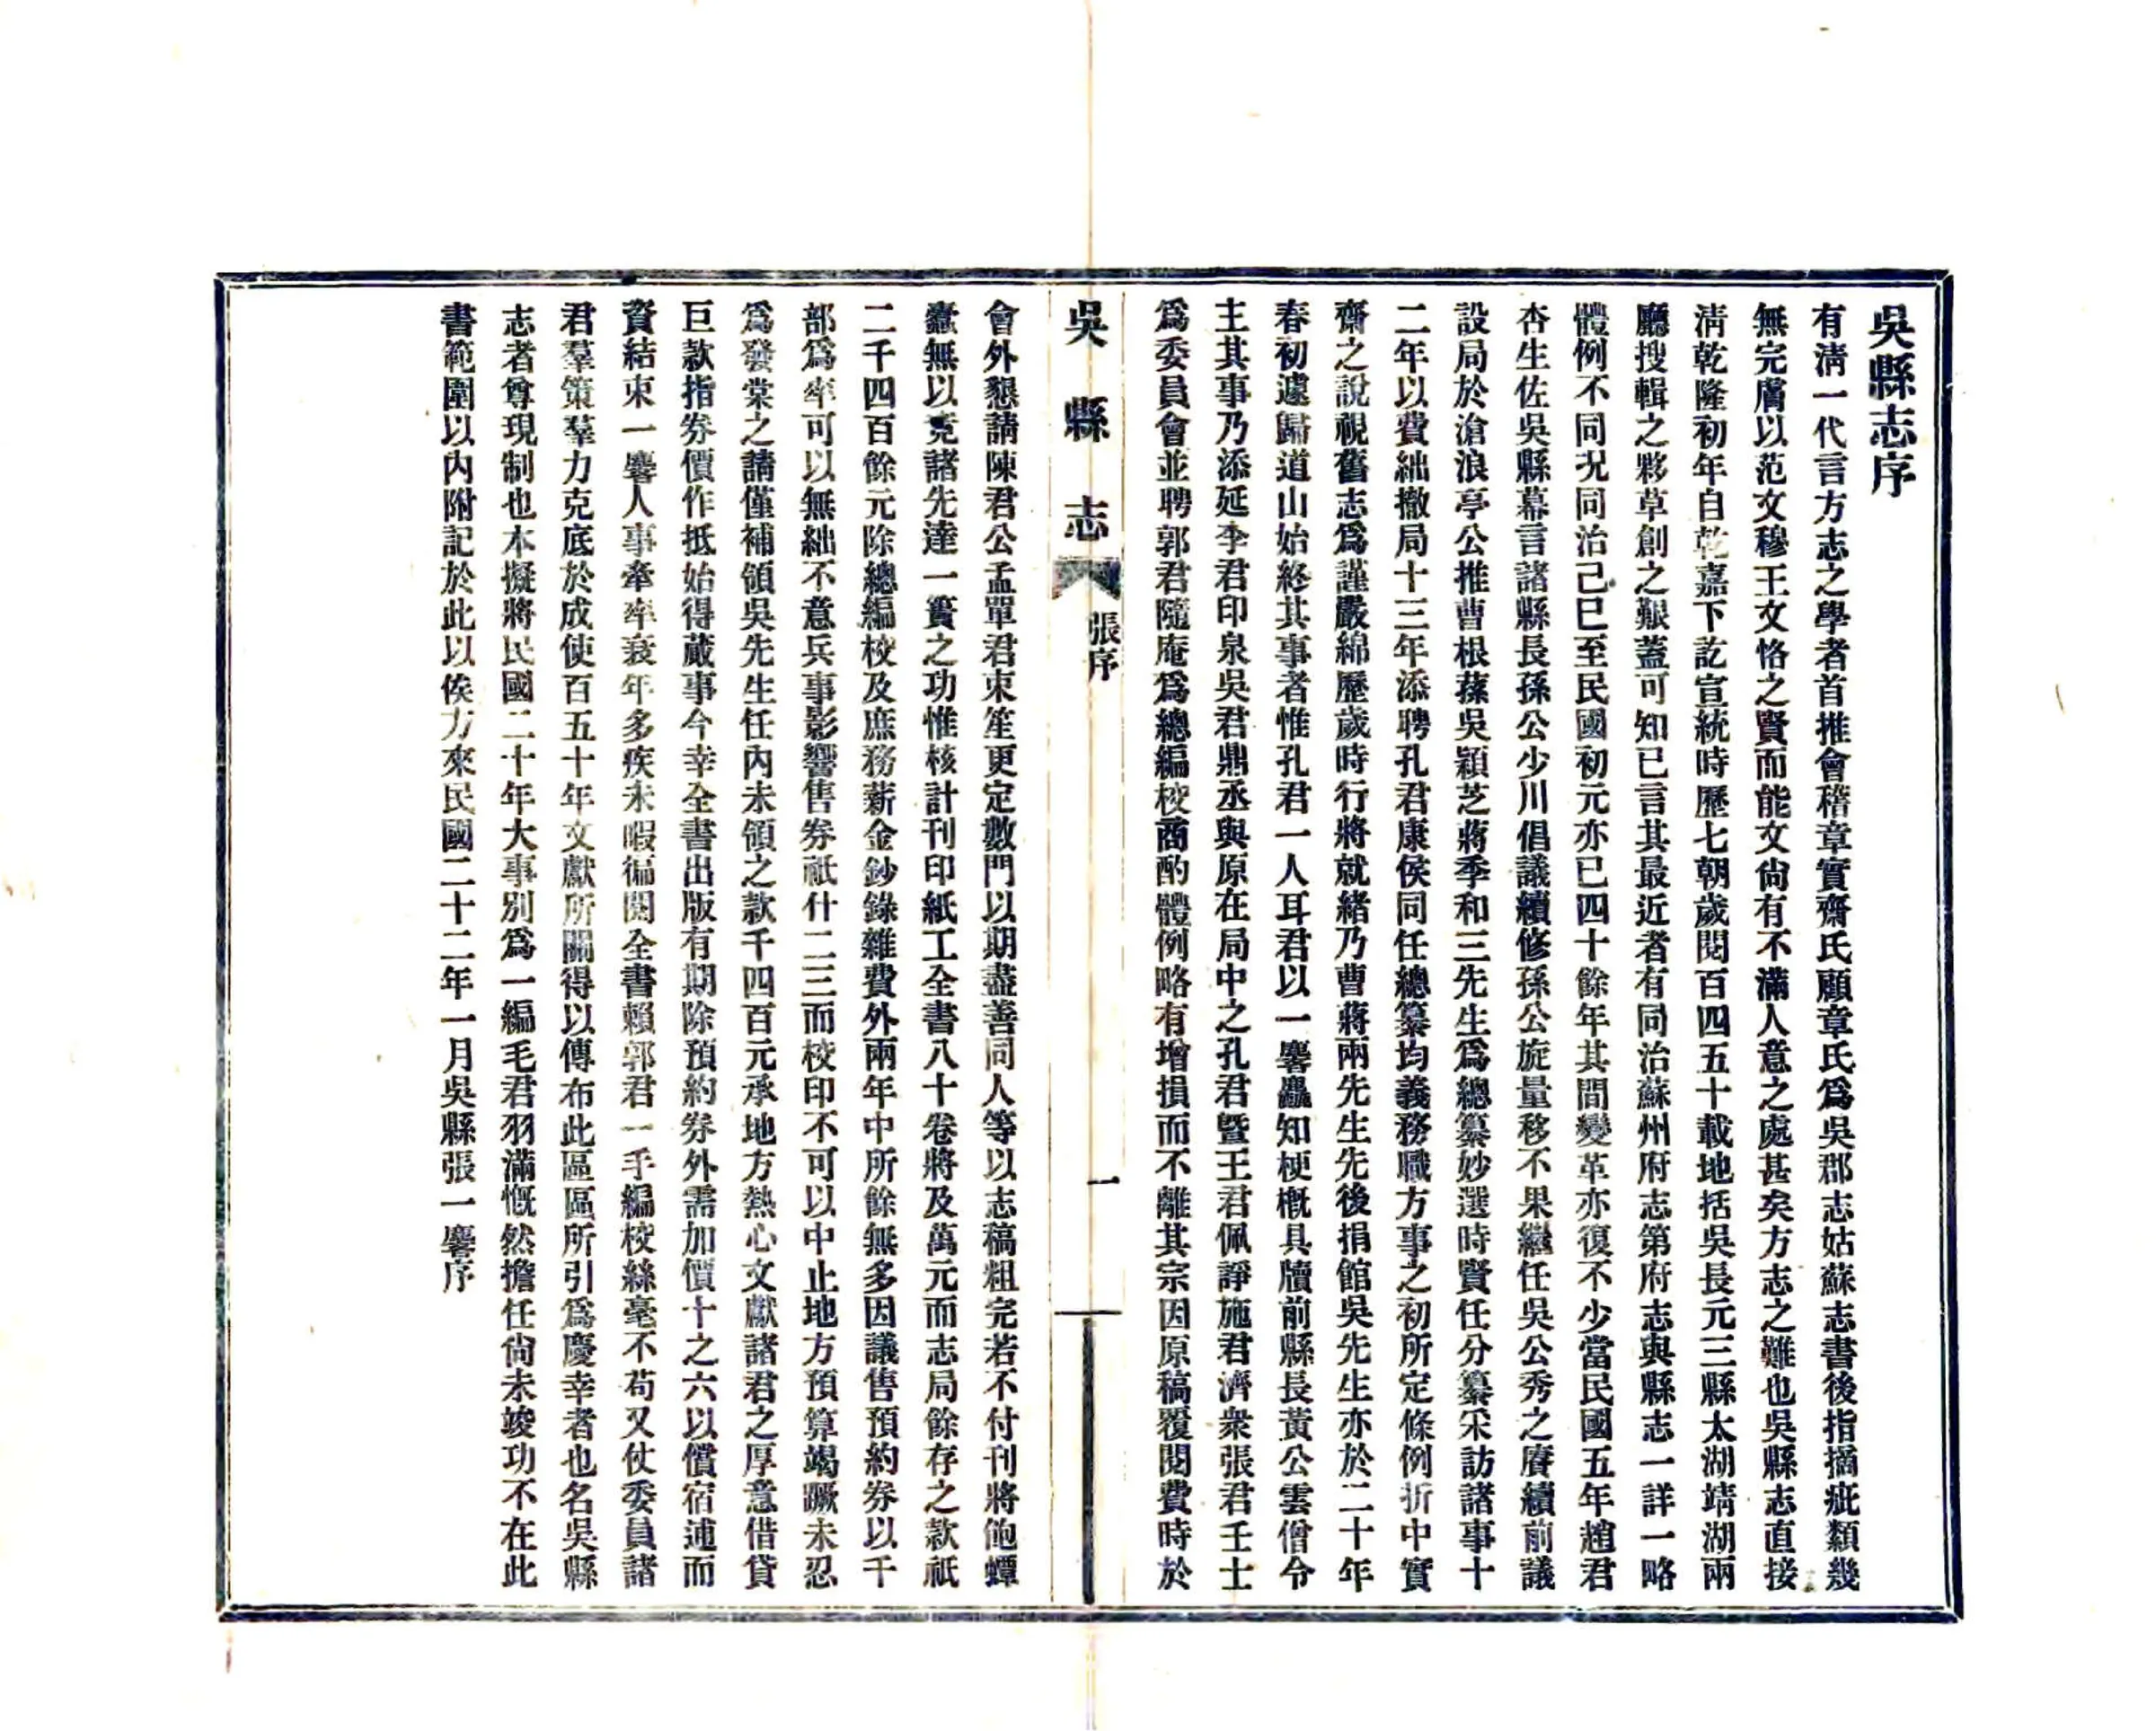 吳縣志序
有淸一代言方志之學者首推會稽章實齋氏顧章氏爲吳郡志姑蘇志書後指摘疵類幾
無完膚以范文穆王文恪之賢而能文尙有不滿人意之處甚矣方志之難也吳縣志直接
淸乾隆初年自乾嘉下訖宣統時歷七朝歲閱百四五十載地括吳長元三縣太湖靖湖兩
廳搜輯之夥草創之艱蓋可知已言其最近者有同治蘇州府志第府志與縣志一詳一略
體例不同況同治己巳至民國初元亦已四十餘年其間變革亦復不少當民國五年趙君
杏生佐吳縣幕言諸縣長孫公少川倡議續修孫公旋量移不果繼任吳公秀之賡續前議
設局於滄浪亭公推曹根蓀吳穎芝蔣季和三先生爲總纂妙選時賢任分纂采訪諸事十
二年以費絀撤局十三年添聘孔君康侯同任總纂均義務職方事之初所定條例折中實
齋之說視舊志爲謹嚴綿歷歲時行將就緒乃曹蔣兩先生先後捐館吳先生亦於二十年
春初遽歸道山始終其事者惟孔君一人耳君以一麐麤知梗槪具牘前縣長黃公雲僧令
主其事乃添延李君印泉吳君鼎丞與原在局中之孔君曁王君佩諍施君濟衆張君壬士
爲委員會並聘郭君隨庵爲總編校商酌體例略有增損而不離其宗因原稿覆閱費時於
吳縣志
張序
一
會外懇請陳君公孟單君束笙更定數門以期盡善同人等以志稿粗完若不付刊將飽蟫
蠹無以竟諸先達一簣之功惟核計刊印紙工全書八十卷將及萬元而志局餘存之款祇
二千四百餘元除總編校及庶務薪金鈔錄雜費外兩年中所餘無多因議售預約券以千
部爲率可以無絀不意兵事影響售券祇什二三而校印不可以中止地方預算竭蹶未忍
爲發棠之請僅補領吳先生任內未領之款千四百元承地方熱心文獻諸君之厚意借貸
巨款指券價作抵始得蕆事今幸全書出版有期除預約券外需加價十之六以償宿逋而
資結束一麐人事牽率衰年多疾未暇徧閱全書賴郭君一手編校絲毫不苟又仗委員諸
君羣策羣力克底於成使百五十年文獻所關得以傳布此區區所引爲慶幸者也名吳縣
志者尊現制也本擬將民國二十年大事別爲一編毛君羽滿慨然擔任尙未竣功不在此
書範圍以內附記於此以俟方來民國二十二年一月吳縣張一麐序